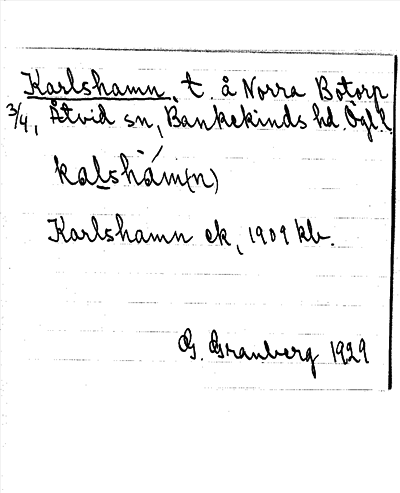 Karlshamn, t. å Norra Botorp
3/4, Åtvid sn, Bankekinds hd. Ögl.
kalshám(n)
Karlshamn ek, 1909 kb.
G. Granberg 1929